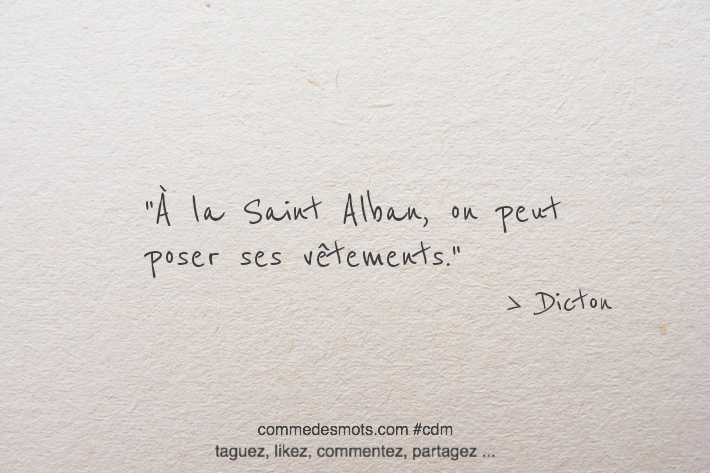 "À la Saint Alban, on peut
poser ses vêtements."
> Dicton
commedesmots.com #cdm
taguez, likez, commentez, partagez ...